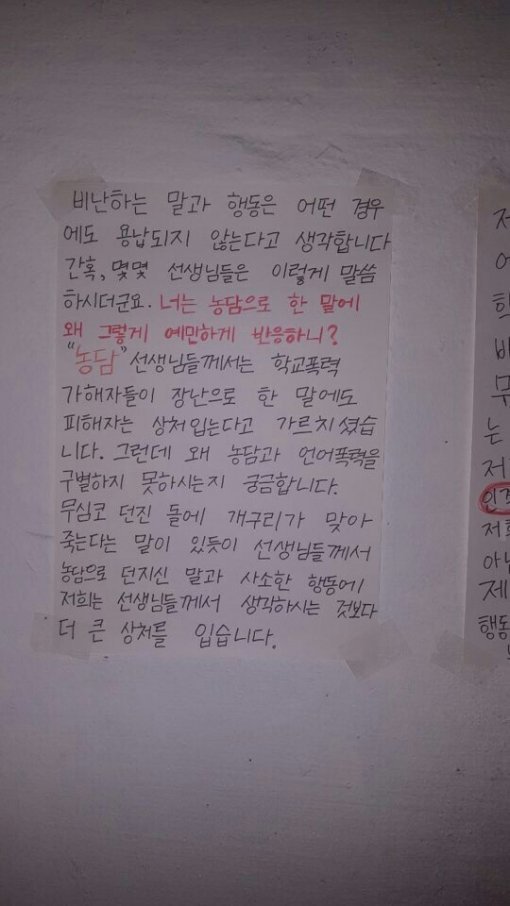 비난하는 말과 행동은 어떤 경우
에도 용납되지 않는다고 생각합니다
간혹, 몇몇 선생님들은 이렇게 말씀
하시더군요. 너는 농담으로 한 말에
왜 그렇게 예만하게 반응하니?
"농담" 선생님들께서는 학교폭력
가해자들이 장난으로 한 말에도
피해자는 상처입는다고 가르치셨습
니다. 그런데 왜 농담과 언어폭력을
구별하지 못하시는지 궁금합니다.
무심코 던진 돌에 개구리가 맞아
죽는다는 말이 있듯이 선생님들께서
농담으로 던지신 말과 사소한 행동에
저희는 선생님들께서 생각하시는 것보다
더 큰 상처를 입습니다.
저
어
학
비
무
는
저
인격
저희
아닙
제
행동